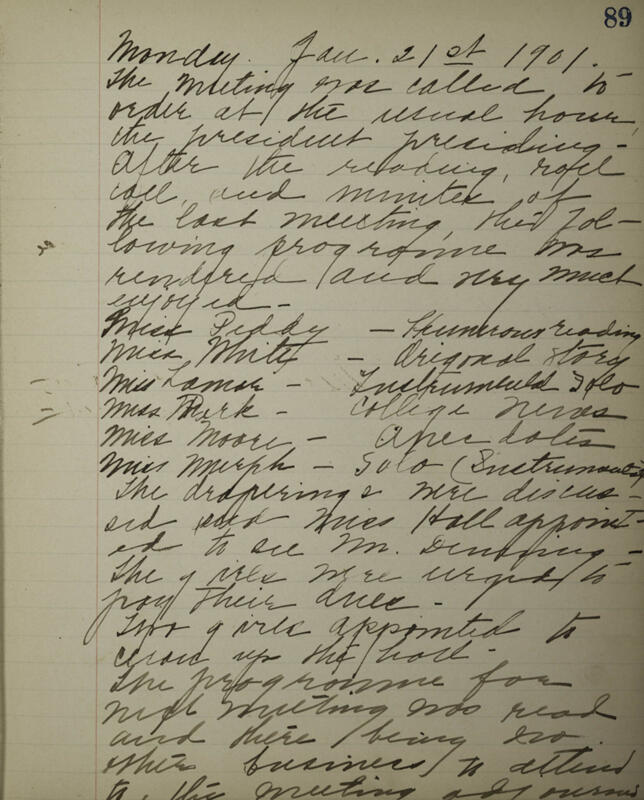 89
Monday. Jan. 21st 1901.
The meeting was called to
order at the usual hour,
the president presiding-
After the reading, roll
call, and minutes of
the last meeting, the fol-
lowing programme was
rendered and very much
enjoyed-
Miss Peddy - Humerous reading
Miss White - Origonal story
Miss Lamar - Instrumental Solo
Miss Park - College News
Miss Moore - Anecdotes
Miss Murph - Solo (Instrumental)
The draperings were discus-
sed and Miss Hall appoint-
ed to see Mr. Denning-
The girls were urged to
pay their dues.
Two girls appointed to
clean up the hall-
The programme for
next meeting was read
and there being no
other business to attend
to, the meeting adjourned